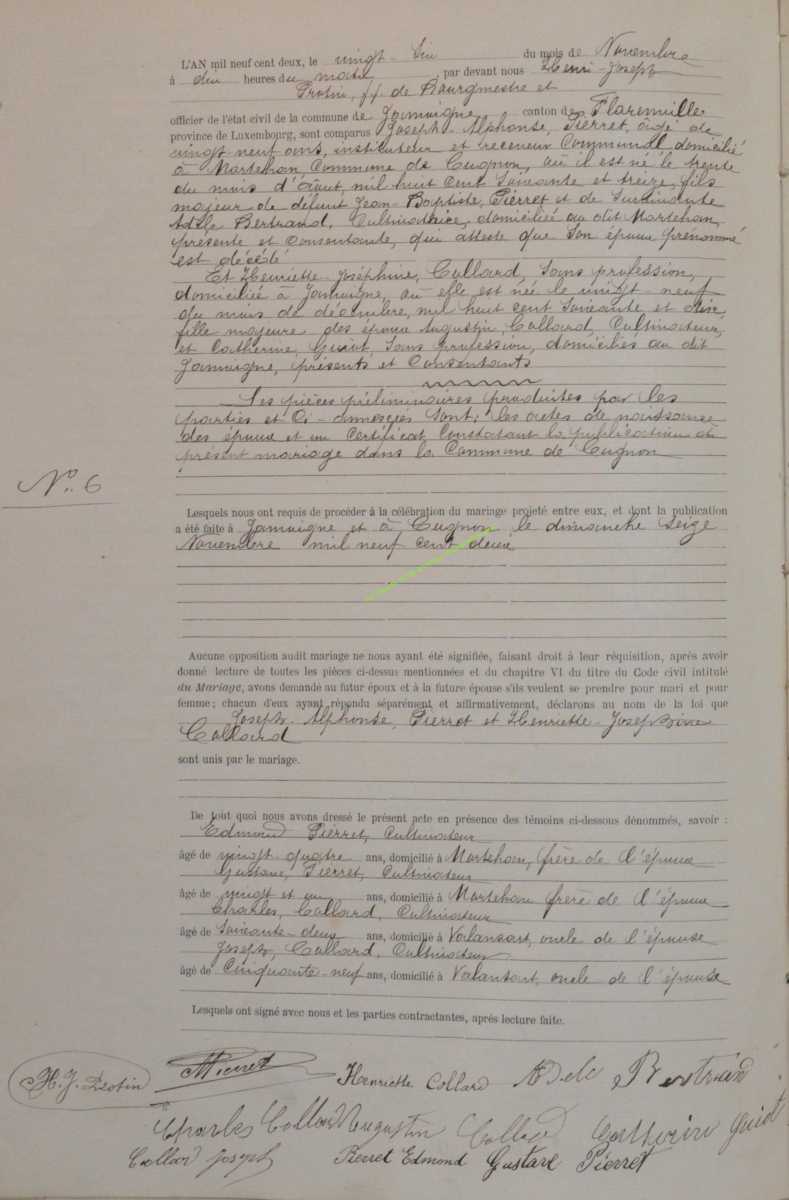 L'AN mil neuf cent deux, le vingt-six du mois de Novembre
à dix heures du matin, par devant nous Henri-Joseph
Protin, ff de Bourgmestre et
officier de l'état civil de la commune de Jamoigne, canton de Florenville
province de Luxembourg, sont comparus Joseph-Alphonse, Pierret, âgé de
vingt neuf ans, instituteur et receveur Communal domicilié
à Mortehan, Commune de Cugnon, où il est né le trente
du mois d'Août, mil huit cent soixante et treize, fils
majeur de défunt Jean-Baptiste, Pierret et de survivante
Adèle Bertrand, Cultivatrice, domiciliée au dit Mortehan,
présente et consentante, qui atteste que son époux prénommé
est décédé
Et Henriette-Joséphine, Collard, sans profession,
domiciliée à Jamoigne, où elle est née le vingt-neuf
du mois de décembre, mil huit cent soixante et dix,
fille majeure des époux Augustin, Collard, Cultivateur,
et Catherine, Guiot, sans profession, domiciliés au dit
Jamoigne, présents et consentants
Les pièces préliminaires produites par les
parties et ci-annexées sont: les actes de naissance
des époux et un certificat constatant la publication du
présent mariage dans la Commune de Cugnon
No. 6
Lesquels nous ont requis de procéder à la célébration du mariage projeté entre eux, et dont la publication
a été faite à Jamoigne et à Cugnon le dimanche seize
Novembre mil neuf cent deux
Aucune opposition audit mariage ne nous ayant été signifiée, faisant droit à leur réquisition, après avoir
donné lecture de toutes les pièces ci-dessus mentionnées et du chapitre VI du titre du Code civil intitulé
du Mariage, avons demandé au futur époux et à la future épouse s'ils veulent se prendre pour mari et pour
femme; chacun d'eux ayant répondu séparément et affirmativement, déclarons au nom de la loi que
Joseph-Alphonse, Pierret et Henriette-Joséphine
Collard
sont unis par le mariage.
De tout quoi nous avons dressé le présent acte en présence des témoins ci-dessous dénommés, savoir :
Edmond Pierret, Cultivateur
âgé de vingt quatre ans, domicilié à Mortehan, frère de l'époux
Gustave, Pierret, Cultivateur
âgé de vingt et un ans, domicilié à Mortehan frère de l'époux
Charles, Collard, Cultivateur
âgé de soixante-deux ans, domicilié à Valansart, oncle de l'épouse
Joseph, Collard, Cultivateur
âgé de Cinquante-neuf ans, domicilié à Valansart, oncle de l'épouse
Lesquels ont signé avec nous et les parties contractantes, après lecture faite.
H. J. Protin Pierret Henriette Collard Adele Bertrand
Charles Collard Augustin Collard Catherine Guiot
Collard Joseph Pierret Edmond Gustave Pierret